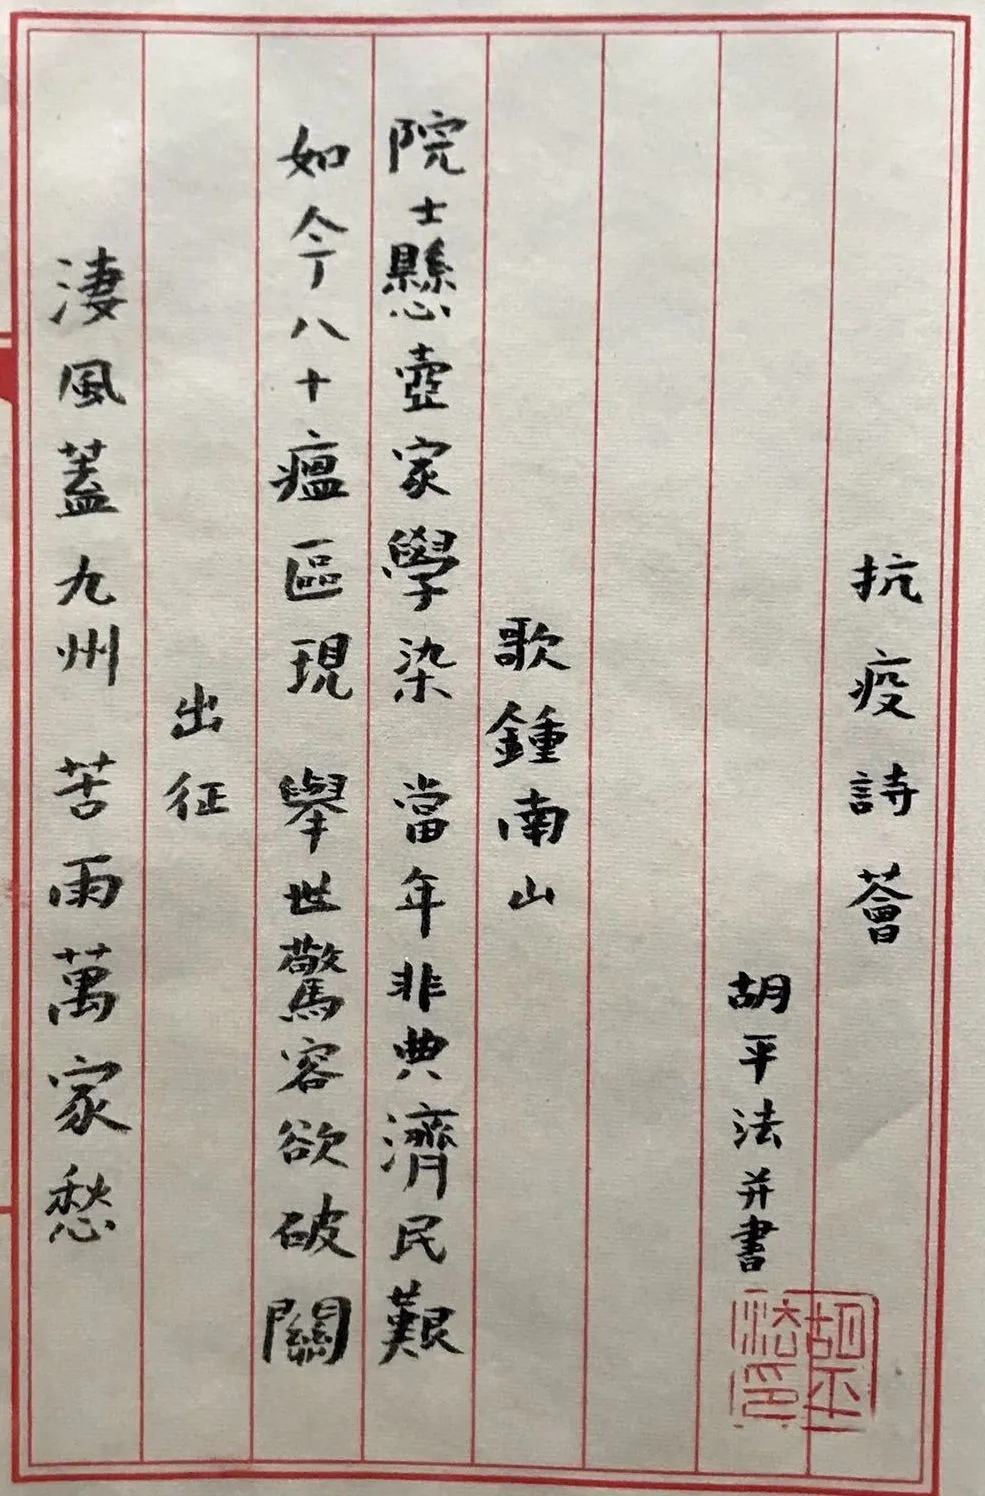 抗疫詩薈
胡平法并書
胡平法印
歌鍾南山
院士懸壺家學染 當年非典濟民艱
如今八十瘟區現 舉世驚容欲破關
出征
淒風蓋九州 苦雨萬家愁